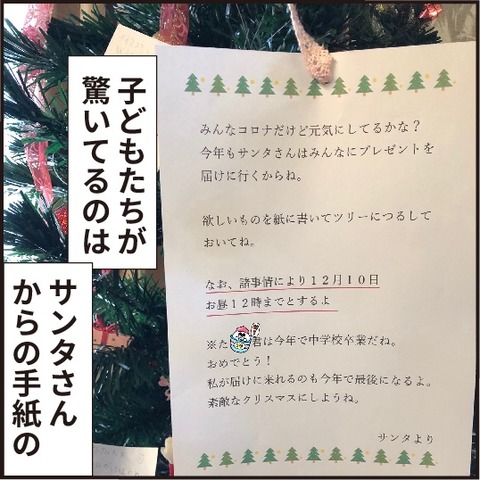 子どもたちが
驚いてるのは
サンタさん
からの手紙の
みんなコロナだけど元気にしてるかな?
今年もサンタさんはみんなにプレゼントを
届けに行くからね。
欲しいものを紙に書いてツリーにつるして
おいてね。
なお、諸事情により12月10日
お昼12時までとするよ
※た 君は今年で中学校卒業だね。
おめでとう!
私が届けに来れるのも今年で最後になるよ。
素敵なクリスマスにしようね。
サンタより